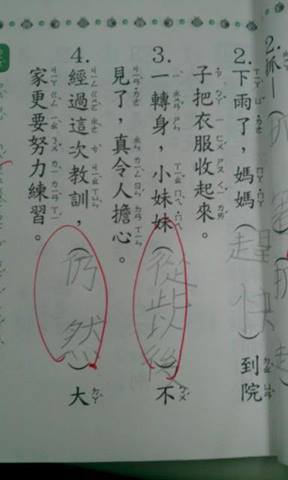 2.下雨了，媽媽（趕快）到院
子把衣服收起來。
3.一轉身，小妹妹（從此後）不
見了，真令人擔心。
4.經過這次教訓，（仍然）大
家更要努力練習。